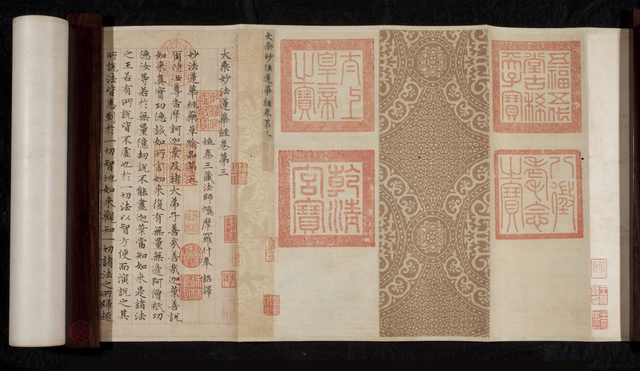 五福五代堂古稀天子寶
八徵耄念之寶
太上皇帝之寶
乾清宮寶
大乘妙法蓮華經卷第三
大乘妙法蓮華經卷第三
姚秦三藏法師鳩摩羅什奉 詔譯
妙法蓮華經藥草喻品第五
爾時世尊告摩訶迦葉及諸大弟子善哉善哉迦葉善說
如來真實功德誠如所言如來復有無量無邊阿僧祇功
德汝等若於無量億劫說不能盡迦葉當知如來是諸法
之王若有所說皆不虛也於一切法以智方便而演說之其
所說法皆悉到於一切智地如來觀知一切諸法之所歸趣